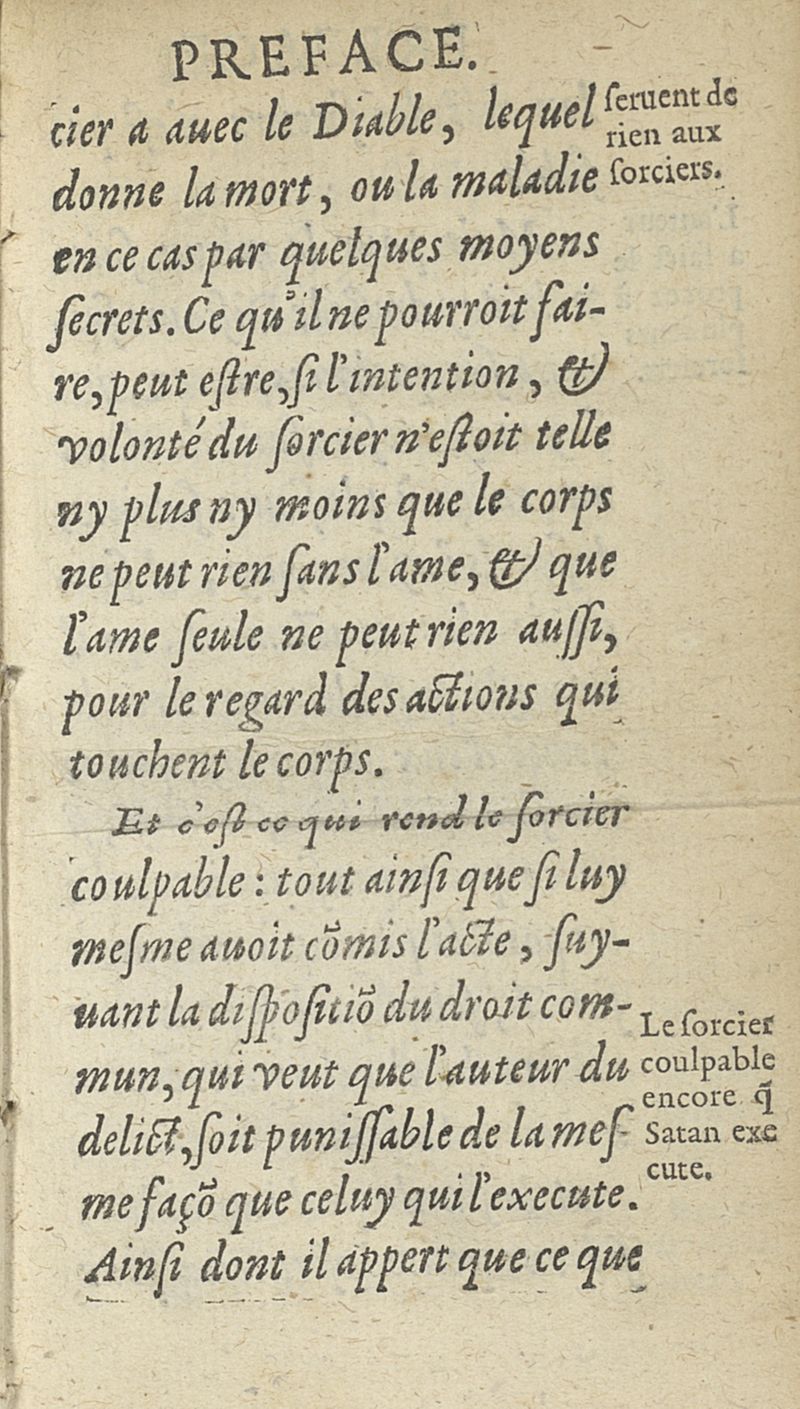 PREFACE.
cier a auec le Diable, lequel
donne la mort, ou la maladie
en ce cas par quelques moyens
ſecrets. Ce qu'il ne pourroit fai-
re, peut eſtre, ſi l'intention, &
volonté du ſorcier n'eſtoit telle
ny plus ny moins que le corps
ne peut rien ſans l'ame, & que
l'ame ſeule ne peut rien auſſi,
pour le regard des actions qui
touchent le corps.
Et c'eſt ce qui rend le ſorcier
coulpable : tout ainſi que ſi luy
meſme auoit cõmis l'acte, ſuy-
uant la diſpoſitiõ du droit com-
mun, qui veut que l'auteur du
delict, ſoit puniſſable de la meſ-
me façõ que celuy qui l'execute.
Ainſi dont il appert que ce que
ſeruent de
rien aux
ſorciers.
Le ſorcier
coulpable
encore q̃
Satan exe
cute.